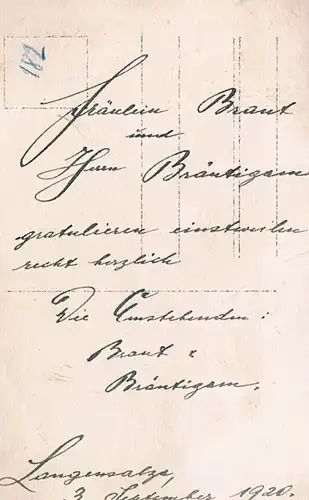 187
Fräulein Braut
und
Herrn Bräutigam
gratulieren einstweilen
recht herzlich
Die Umstehenden:
Braut &
Bräutigam.
Langensalza,
3. September 1920.